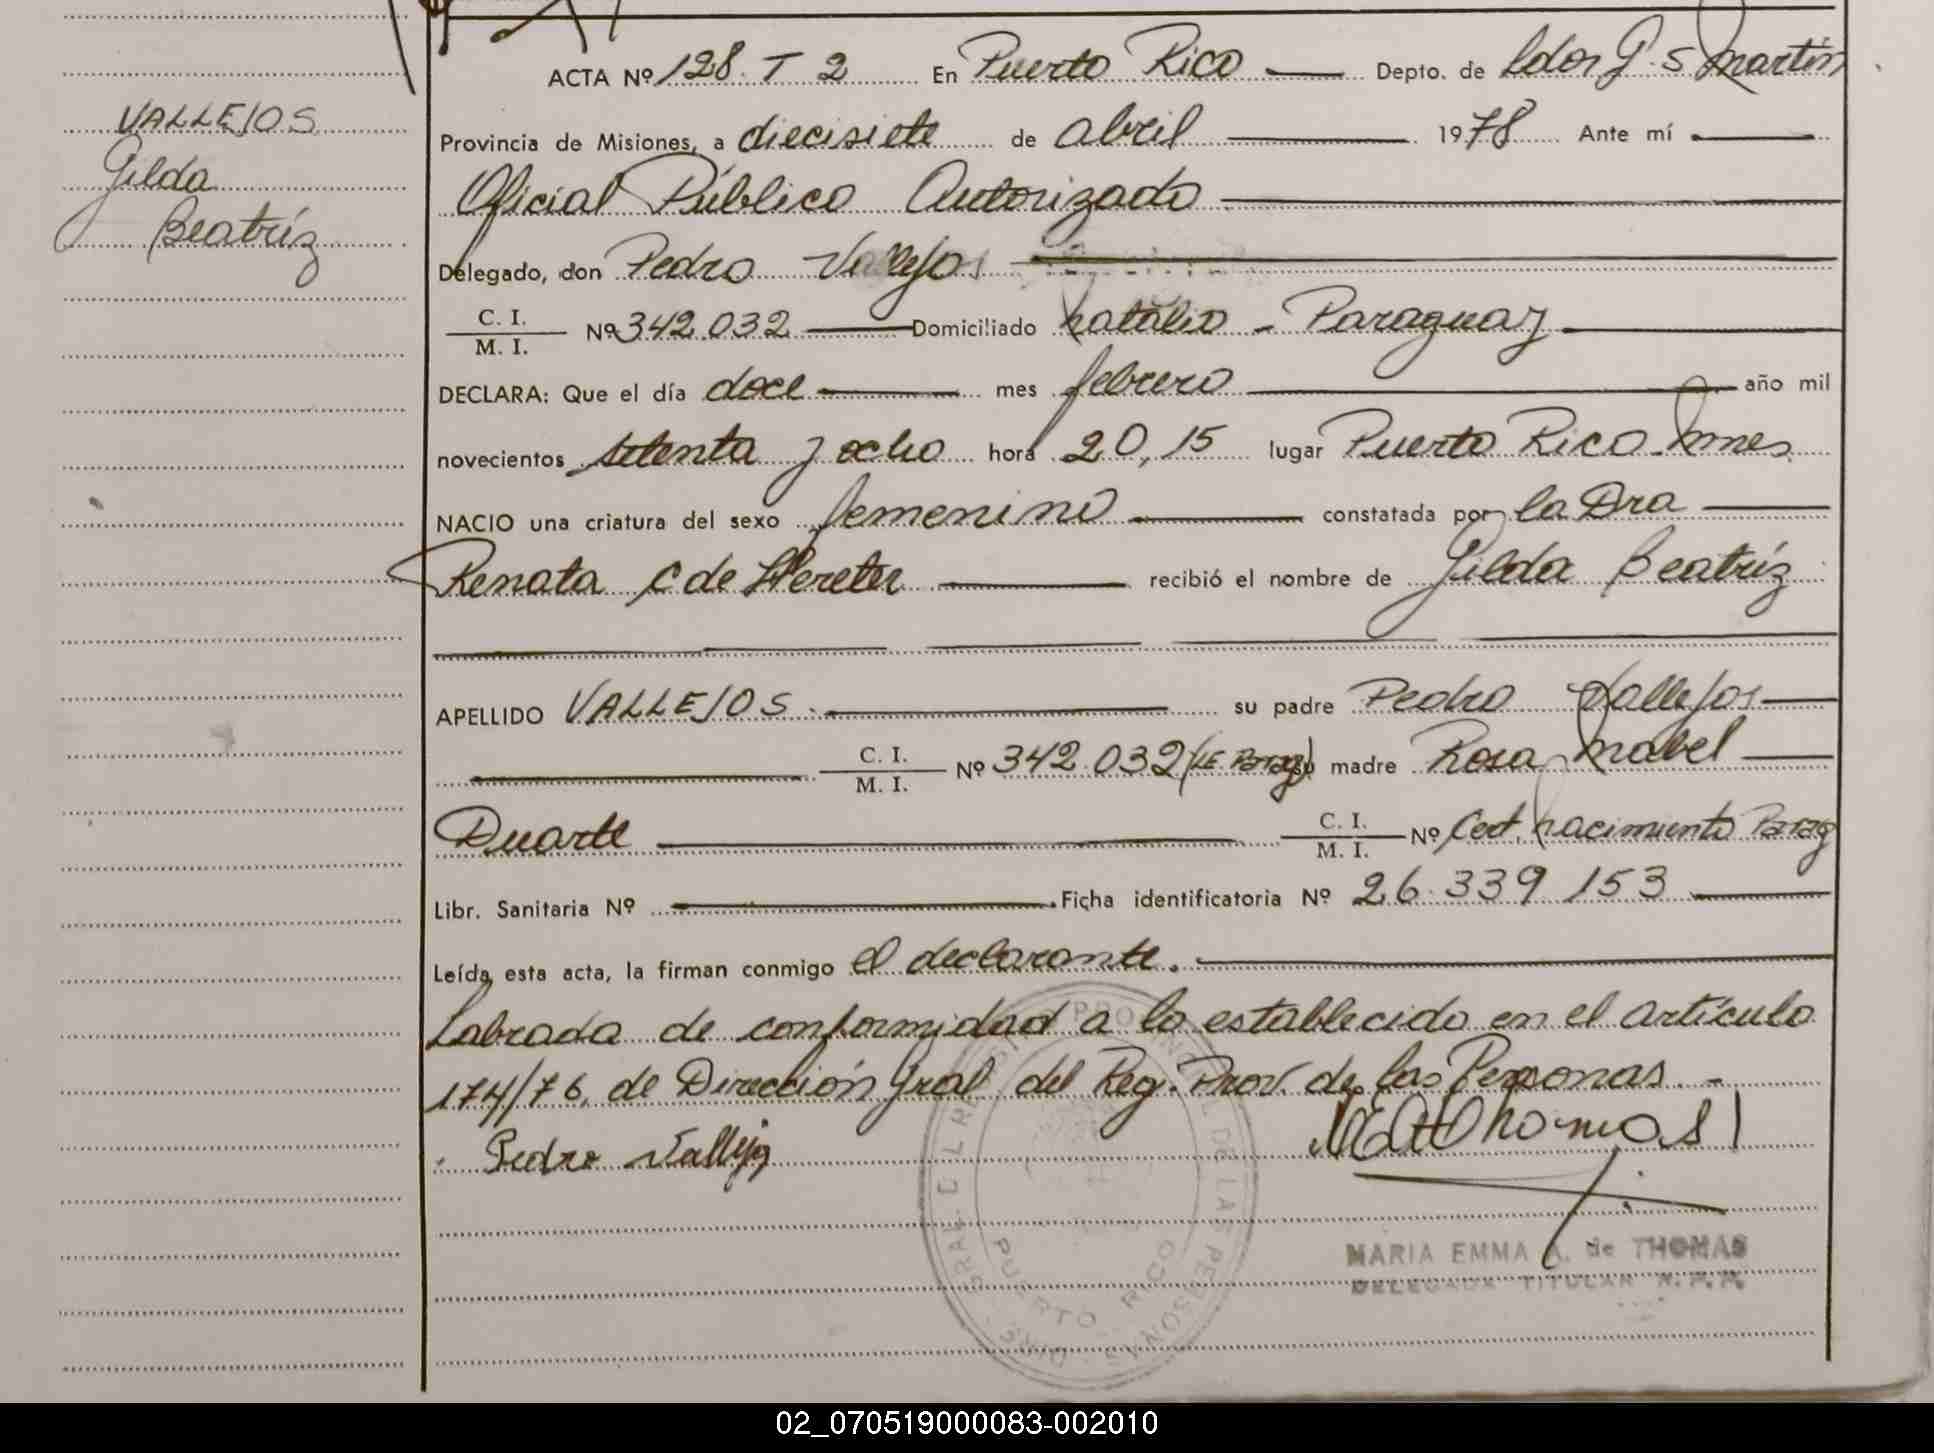 VALLEJOS
Gilda
Beatríz
ACTA Nº 128. T 2 En Puerto Rico Depto. de Ldor G. S Martín
Provincia de Misiones, a diecisiete de abril 1978 Ante mí
Oficial Público Autorizado
Delegado, don Pedro Vallejos
C. I.
M. I. Nº 342.032 Domiciliado Natalio - Paraguay
DECLARA: Que el día doce mes febrero año mil
novecientos setenta y ocho hora 20,15 lugar Puerto Rico Mnes
NACIO una criatura del sexo femenino constatada por la Dra
Renata C de Hereter recibió el nombre de Gilda Beatríz
APELLIDO VALLEJOS. su padre Pedro Vallejos
C. I.
M. I. Nº 342.032 (LE. Parag) su madre Rosa Mabel
Duarte C. I.
M. I. Nº Cert. Nacimiento Parag
Libr. Sanitaria Nº Ficha identificatoria Nº 26.339.153
Leída esta acta, la firman conmigo el declarante.
Labrada de conformidad a lo establecido en el artículo
174/76, de Dirección Gral del Reg. Prov. de las Personas. -
Pedro Vallejo
MEAThomas
DIRE. GRAL. DEL REGISTRO PROVINCIAL DE LAS PERSONAS
PUERTO RICO
MARIA EMMA A. de THOMAS
DELEGADA TITULAR R. P. P.
02_070519000083-002010